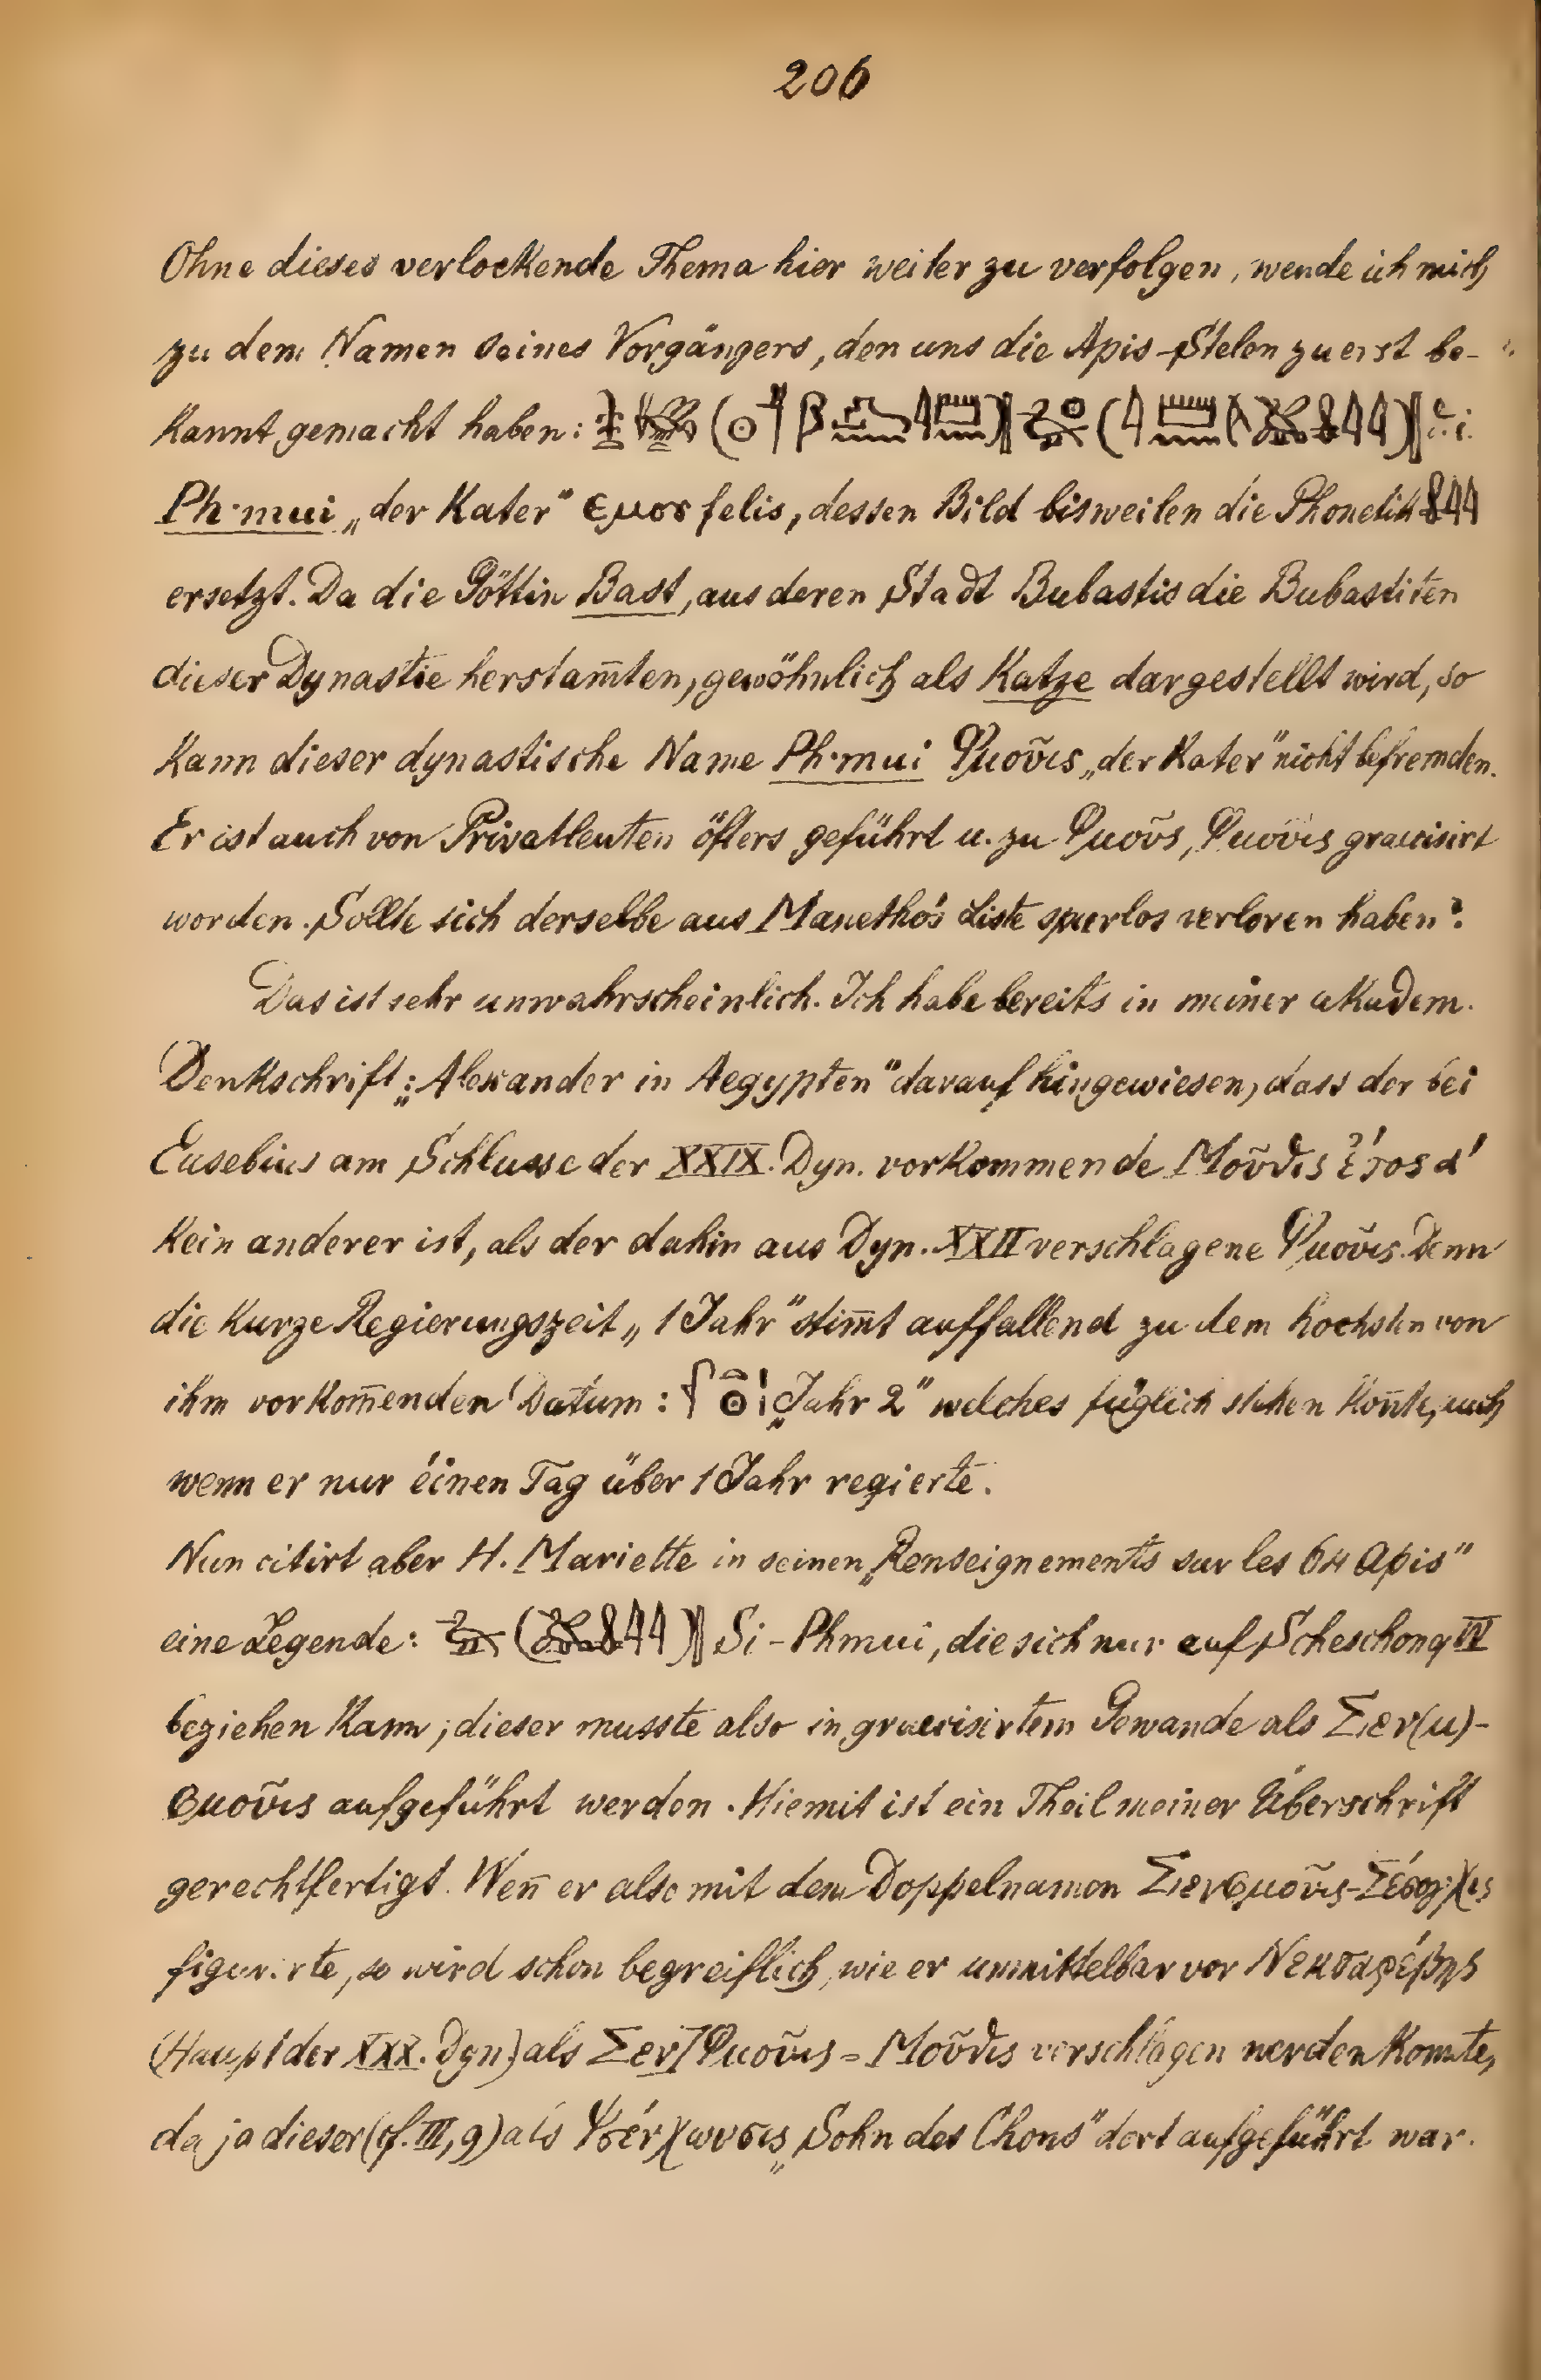 206
Ohne dieses verlockende Thema hier weiter zu verfolgen, wende ich mich
zu dem Namen seines Vorgängers, den uns die Apis-Stelen zuerst be-
kannt gemacht haben: d. i.
Ph·mui „der Kater" ϵμου felis, dessen Bild bisweilen die Phonetik
ersetzt. Da die Göttin Bast, aus deren Stadt Bubastis die Bubastiten
dieser Dynastie herstam̄ten, gewöhnlich als Katze dargestellt wird, so
kann dieser dynastische Name Ph·mui Φμοῦις „der Kater" nicht befremden.
Er ist auch von Privatleuten öfters geführt u. zu Φμοῦς, Φμούις graecisirt
worden. Sollte sich derselbe aus Manetho's Liste spurlos verloren haben?
Das ist sehr unwahrscheinlich. Ich habe bereits in meiner akadem.
Denkschrift: „Alexander in Aegypten" darauf hingewiesen, dass der bei
Eusebius am Schlusse der XXIX. Dyn. vorkommende Μοῦθις ἔτος α'
kein anderer ist, als der dahin aus Dyn. XXII verschlagene Φμοῦις. Denn
die kurze Regierungszeit „1 Jahr" stim̄t auffallend zu dem höchsten von
ihm vorkom̄enden Datum: „Jahr 2" welches füglich stehen kon̄te, auch
wenn er nur éinen Tag über 1 Jahr regierte.
Nun citirt aber H. Mariette in seinen „Renseignements sur les 64 Apis"
eine Legende: Si-Phmui, die sich nur auf Scheschonq IV
beziehen kann; dieser musste also in graecisirtem Gewande als Σιεν(μ)-
φμοῦις aufgeführt werden. Hiemit ist ein Theil meiner Überschrift
gerechtfertigt. Wen̄ er also mit dem Doppelnamen Σιενφμοῦις-Σέσογχις
figurirte, so wird schon begreiflich, wie er unmittelbar vor Νεκταρέβης
(Haupt der XXX. Dyn) als Σεν]Φμοῦις = Μοῦθις verschlagen werden konnte,
da ja dieser (cf. III, 9) als Ψένχωνσις „Sohn des Chons" dort aufgeführt war.